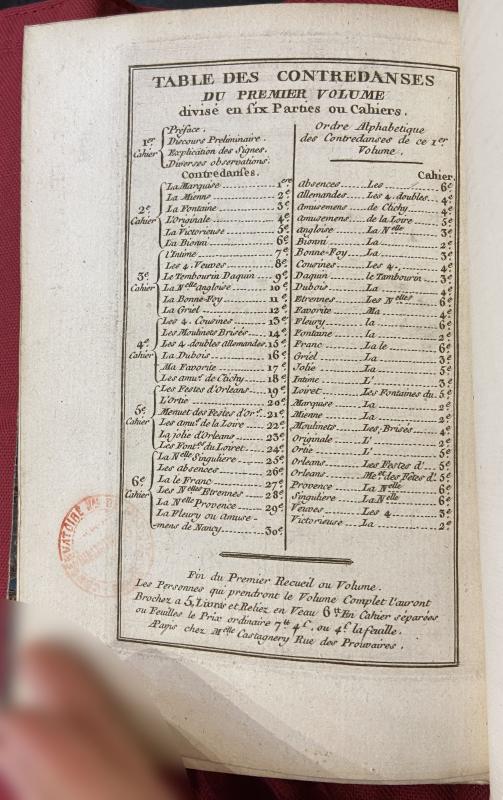 TABLE DES CONTREDANSES
DU PREMIER VOLUME
divisé en six Parties ou Cahiers.
1er Cahier
Préface.
Discours Preliminaire.
Explication des Signes.
Diverses observations.
Contredanses.
2e Cahier
La Marquise 1ere
La Mienne 2e
La Fontaine 3e
L'Originale 4e
La Victorieuse 5e
La Bionni 6e
3e Cahier
l'Intime 7e
Les 4. Veuves 8e
Le Tembourin Daquin 9e
La Nelle Angloise 10e
La Bonne-Foy 11e
La Griel 12e
4e Cahier
Les 4. Cousines 13e
Les Moulinets Brisés 14e
Les 4. doubles Allemandes 15e
La Dubois 16e
Ma Favorite 17e
Les amus. de Clichy 18e
5e Cahier
Les Festes d'Orleans 19e
L'Ortie 20e
Menuet des Festes d'Or. 21e
Les amus. de la Loire 22e
La jolie d'Orleans 23e
Les Font.es du Loiret 24e
6e Cahier
La Nelle Singuliere 25e
Les absences 26e
La le Franc 27e
Les Nelles Etrennes 28e
La Nelle Provence 29e
La Fleury ou Amuse-
mens de Nancy 30e
Ordre Alphabetique
des Contredanses de ce 1er
Volume.
Cahier.
Absences Les 6e
Allemandes Les 4. doubles 4e
Amusemens de Clichy 4e
Amusemens de la Loire 5e
Angloise La Nelle 3e
Bionni La 2e
Bonne-Foy La 3e
Cousines Les 4. 4e
Daquin le Tambourin 3e
Dubois La 4e
Etrennes Les Nelles 6e
Favorite Ma 4e
Fleury la 6e
Fontaine La 2e
Franc La le 6e
Griel La 3e
Jolie La 5e
Intime L' 3e
Loiret Les Fontaines du 5e
Marquise La 2e
Mienne La 2e
Moulinets Les Brisés 4e
Originale L' 2e
Ortie L' 5e
Orleans Les Festes d' 5e
Orleans Me. des Fêtes d' 5e
Provence La Nelle 6e
Singuliere La Nelle 6e
Veuves Les 4. 3e
Victorieuse La 2e
Fin du Premier Recueil ou Volume.
Les Personnes qui prendront le Volume Complet l'auront
Brochez a 5, Livres et Reliez en Veau 6 tt En Cahier séparées
ou Feuilles le Prix ordinaire 7 tt 4 s. ou 4 s. la feuille.
A Paris chez Melle Castagnery Rue des Prouvaires.